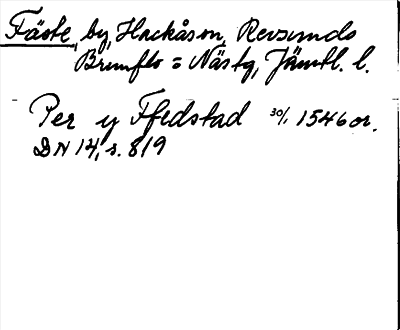 Fäste, by, Hackås sn, Revsunds
Brunflo o Näs tg, Jämtl. l.
Per y Ffedstad 30/1 1546 or.
DN 14, s. 819